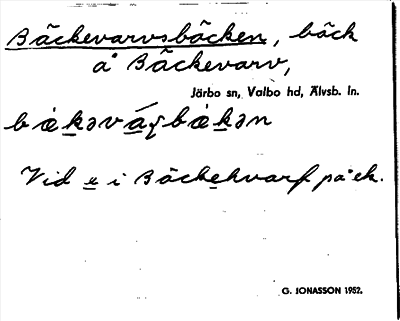 Bäckevarvsbäcken, bäck
å Bäckevarv,
Järbo sn, Valbo hd, Älvsb. ln.
Vid e i Bäckekvarf på ek.
G. JONASSON 1952.